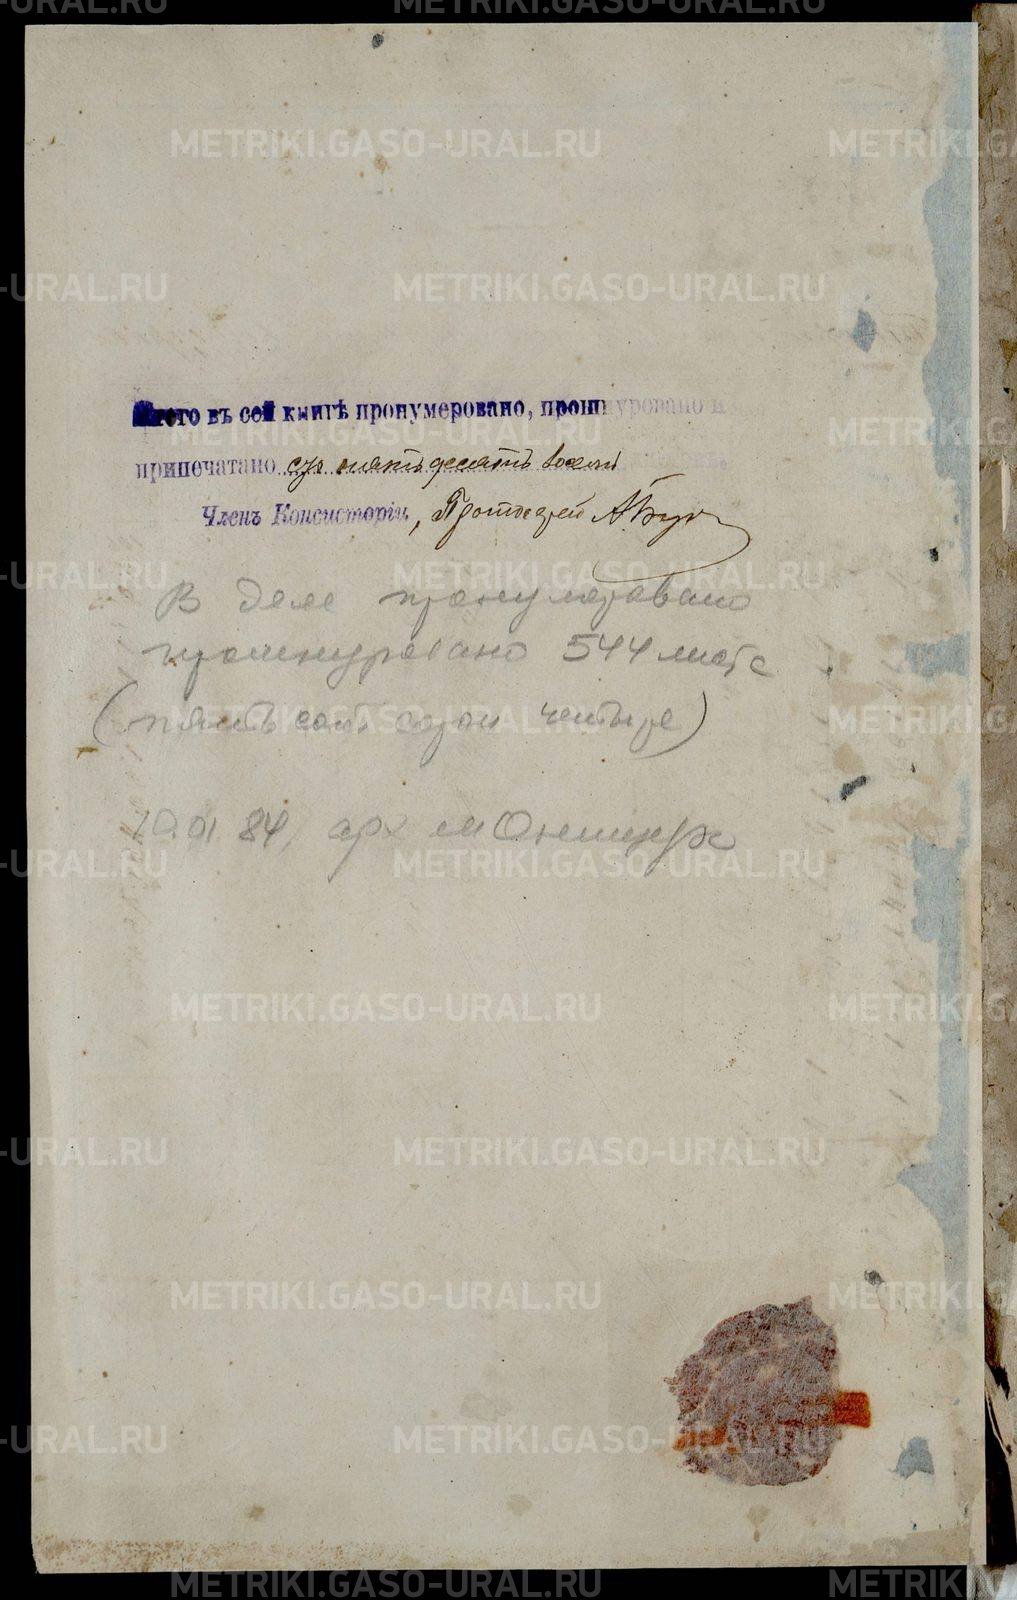 въ сей книгѣ пронумеровано, прошнуровано и
припечатано сто пятьдесятъ восемь
Членъ Консисторіи, Протоіерей А.
В деле пронумеровано
прошнуровано 544 листа
(пятьсот сорок четыре)
10.01.84, арх
METRIKI.GASO-URAL.RU